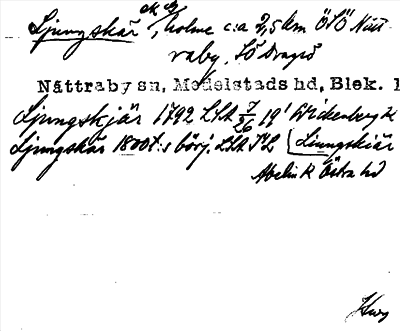 Ljungskär, holme c:a 2,5 km ÖSÖ Nätt-
raby, SÖ Dragsö
Nättraby sn, Medelstads hd, Blek. 1
Ljungskjär 1792 LSA 7/26 19¹ Wickenberg k
Ljungskär 1800t:s börj. LSA [Liungskiär
Abelin k Östra hd